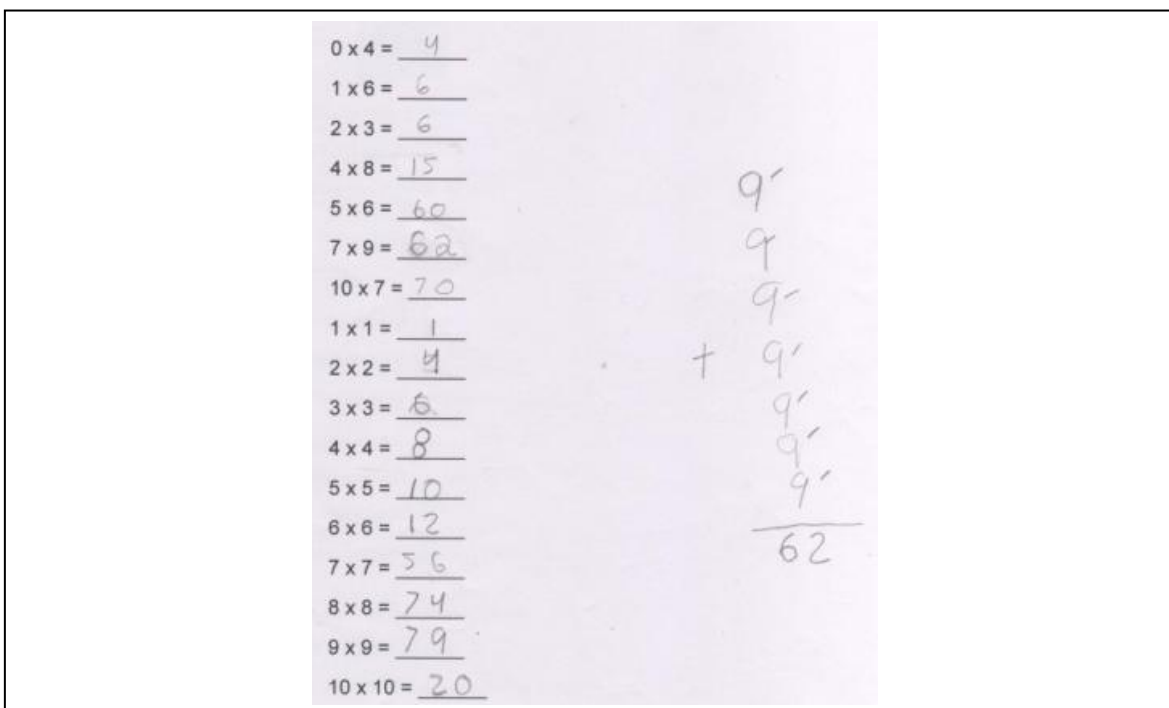 0 x 4 = 4
1 x 6 = 6
2 x 3 = 6
4 x 8 = 15
5 x 6 = 60
7 x 9 = 62
10 x 7 = 70
1 x 1 = 1
2 x 2 = 4
3 x 3 = 6
4 x 4 = 8
5 x 5 = 10
6 x 6 = 12
7 x 7 = 56
8 x 8 = 74
9 x 9 = 79
10 x 10 = 20
9
9
9
+ 9
9
9
9
62